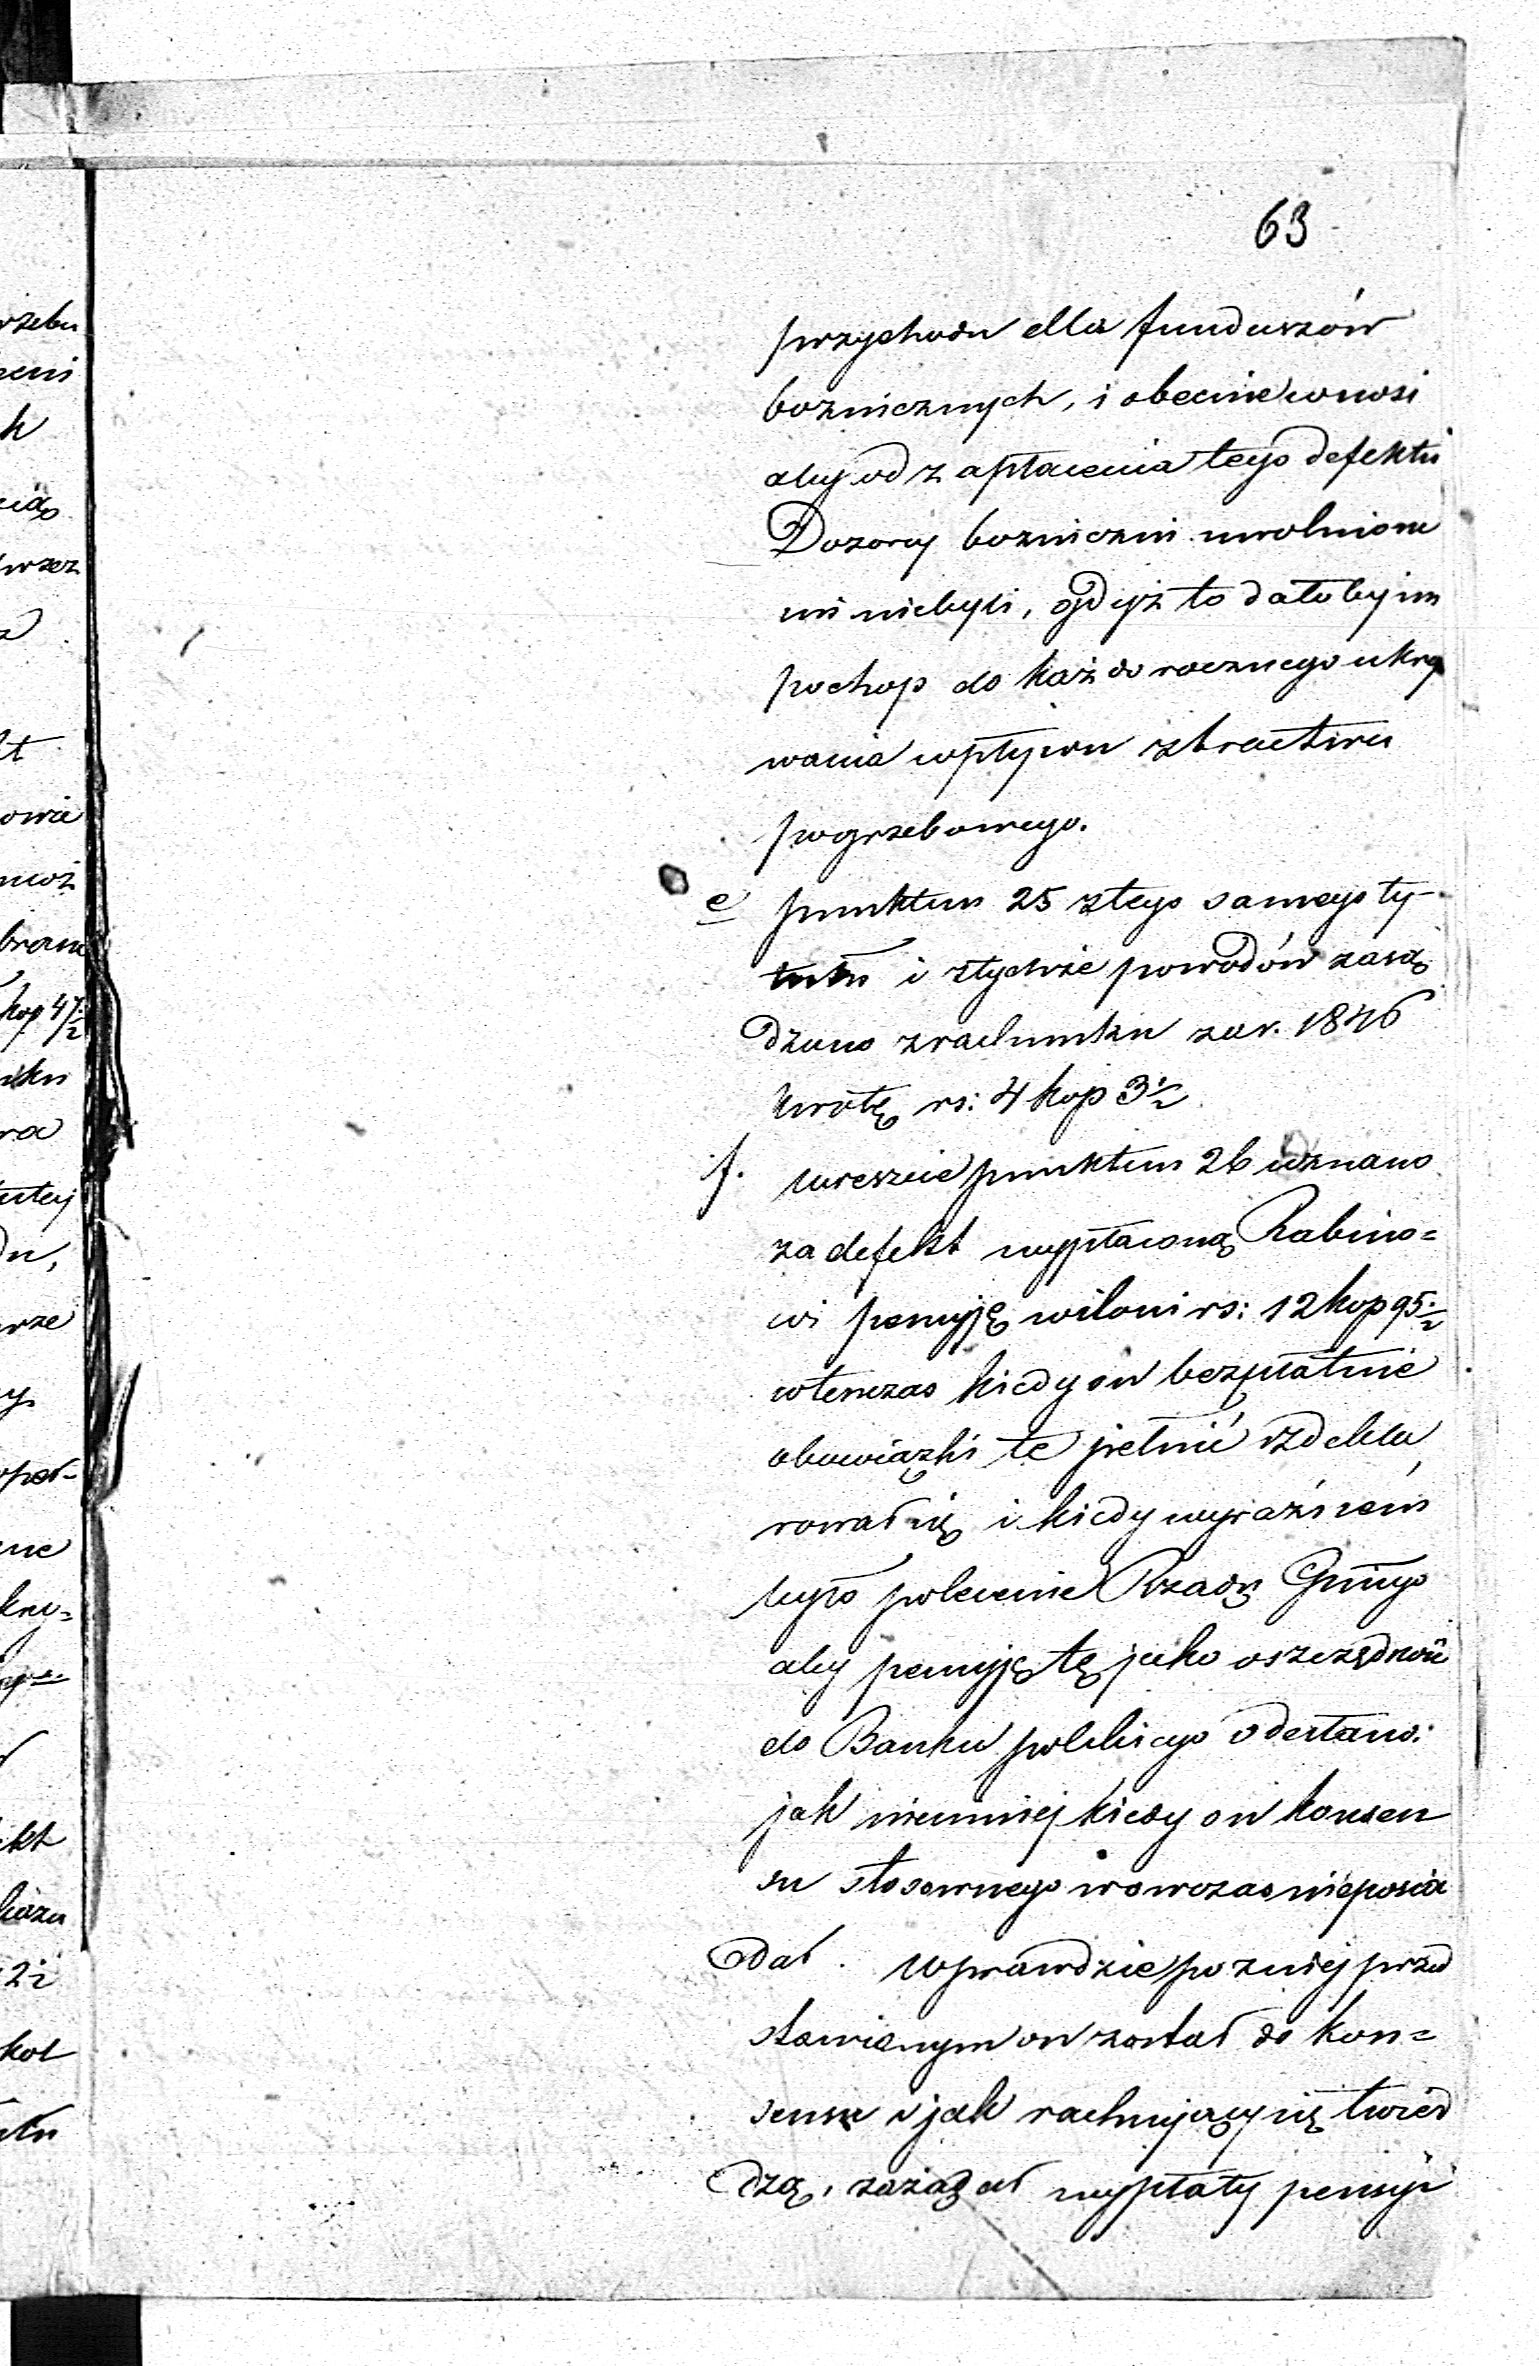 63
przychodu dla funduszów
boznicznych, i obecnie wnosi
aby od zapłacenia tego defektu
Dozorcy bozniczni uwolnione
mi niebyli, gdyż to dało by im
pochop do każdorocznego ukry
wania wpływu z bractwa
pogrzebowego.
e punktem 25 z tego samego ty-
tułu i z tychże powodów zasą
dzono z rachunku za r. 1846
kwotę rs: 4 kop 3 1/2
f. wreszcie punktem 26 uznano
za defekt wypłaconą Rabino=
wi pensyję w iloni rs: 12 kop 95 1/2
wtenczas kiedy on bezpłatnie
obowiązki te pełnić zdekla
rował się i kiedy wyraźnem
było polecenie Rządu Gmngo
aby pensyję tę jako oszczędność
do Banku polskiego odesłano:
jak niemniej kiedy on konsen
su stosownego wowczas nieposia
dał. Wprawdzie pozniej przed
stawionym on został do kon=
sensu i jak rachujący się twier
dzą, zażądał wypłaty pensyi
rzebu
h
wzez
owa
kop 47 1/2
ra
du,
kry=
kt
2 1/2